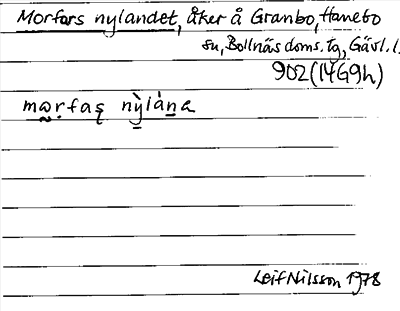 Morfars nylandet, åker å Granbo, Hanebo
sn, Bollnäs doms. tg, Gävl. l.
902 (14G9h)
Leif Nilsson 1978